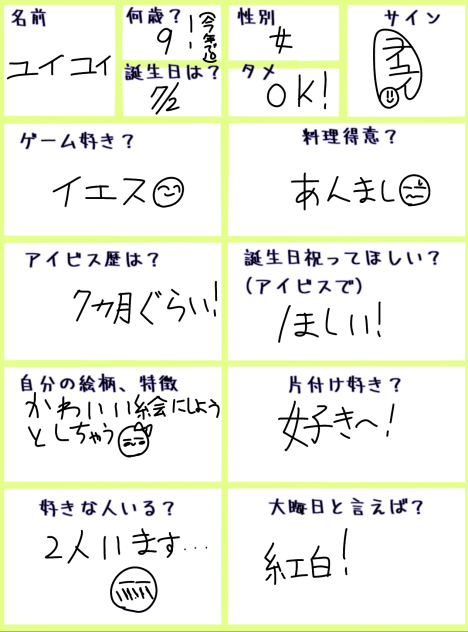 名前
ユイコイ
何歳？
9!
(今年で10)
性別
女
サイン
ユイコイ
誕生日は？
7/2
タメ
OK!
ゲーム好き？
イエス
料理得意？
あんまし
アイビス歴は？
7カ月ぐらい!
誕生日祝ってほしい？
(アイビスで)
ほしい!
自分の絵柄、特徴
かわいい絵にしよう
としちゃう
片付け好き？
好きへ!
好きな人いる？
2人います...
大晦日と言えば？
紅白!